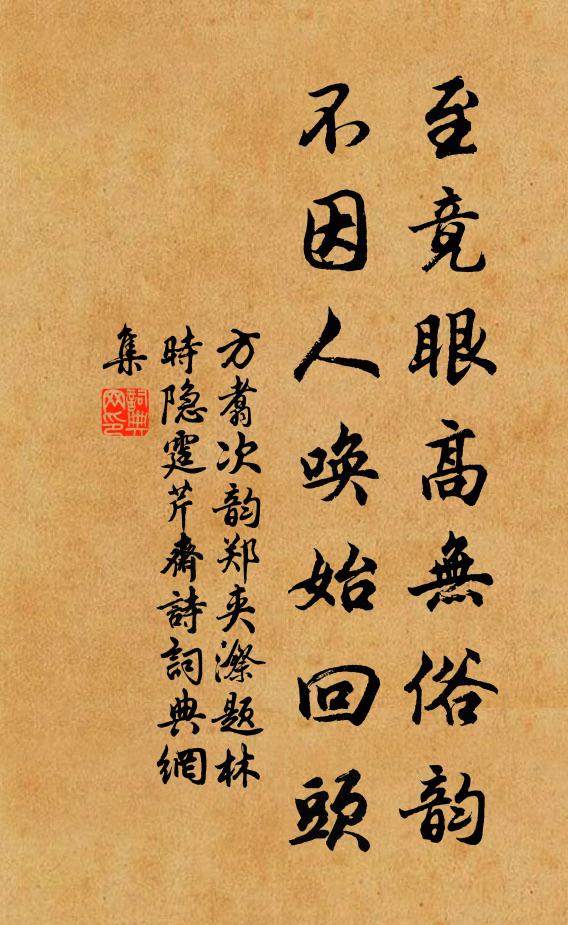 至竟眼高無俗韵
不因人唤始回頭
方翥次韵郑夹漈题林
時隐霆芹齋詩詞典網
集
詞典網印